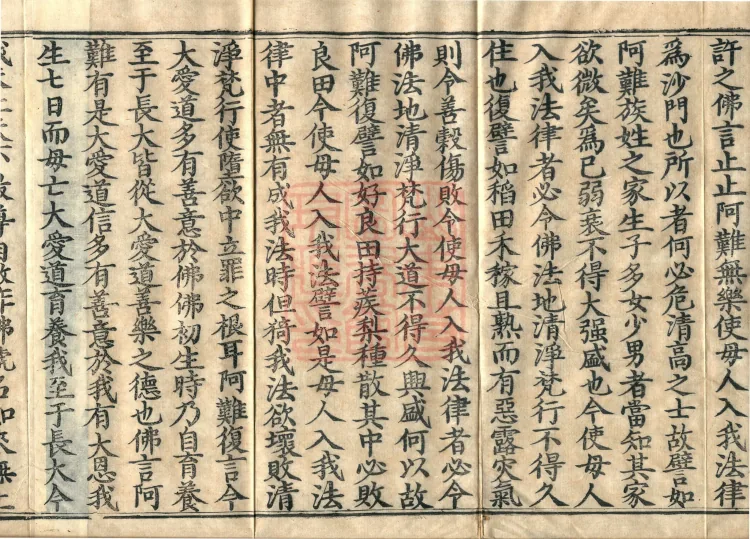 許之佛言止止阿難無樂使母人入我法律
為沙門也所以者何必危清高之士故譬如
阿難族姓之家生子多女少男者當知其家
欲微矣為已弱衰不得大强盛也今使母人
入我法律者必令佛法地清淨梵行不得久
住也復譬如稻田禾稼且熟而有惡露灾氣
則令善穀傷敗今使母人入我法律者必令
佛法地清淨梵行大道不得久興盛何以故
阿難復譬如好良田持疾梨種散其中必敗
良田今使母人入我法譬如是母人入我法
律中者無有成我法時但猗我法欲壞敗清
淨梵行使墮欲中立罪之根耳阿難復言今
大愛道多有善意於佛佛初生時乃自育養
至于長大皆從大愛道善樂之德也佛言阿
難有是大愛道信多有善意於我有大恩我
生七日而母亡大愛道育養我至于長大今